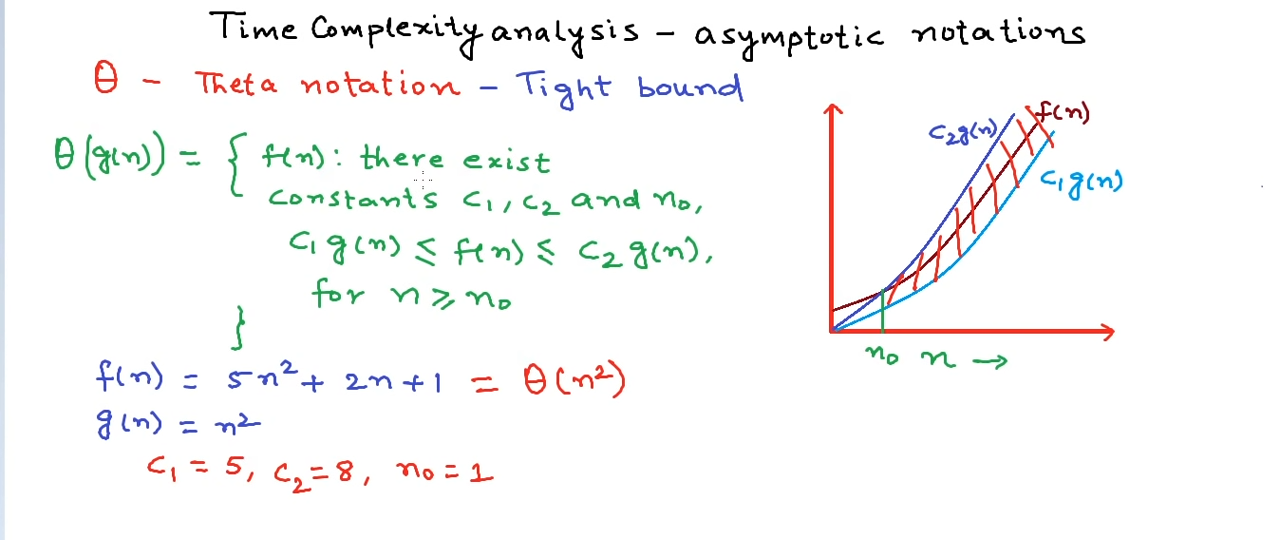 Time Complexity analysis - asymptotic notations
θ - Theta notation - Tight bound
θ(g(n)) = { f(n): there exist
constants c₁, c₂ and n₀,
c₁g(n) ≤ f(n) ≤ c₂g(n),
for n ≥ n₀
}
f(n) = 5n² + 2n + 1 = θ(n²)
g(n) = n²
c₁ = 5, c₂ = 8, n₀ = 1
f(n)
c₂g(n)
c₁g(n)
n₀ n →